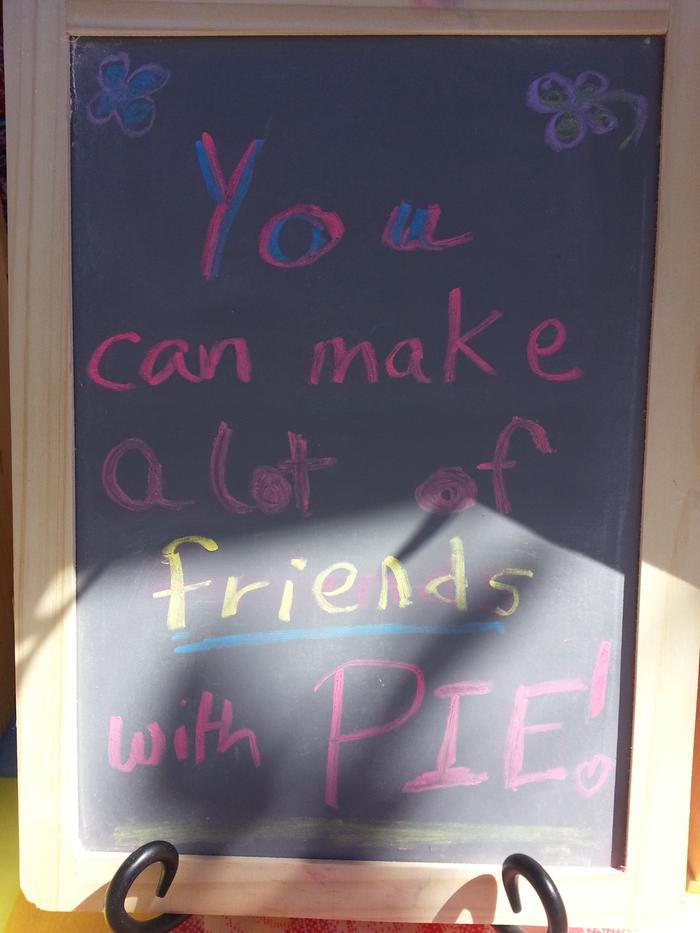 You
can make
a lot of
friends
with PIE!